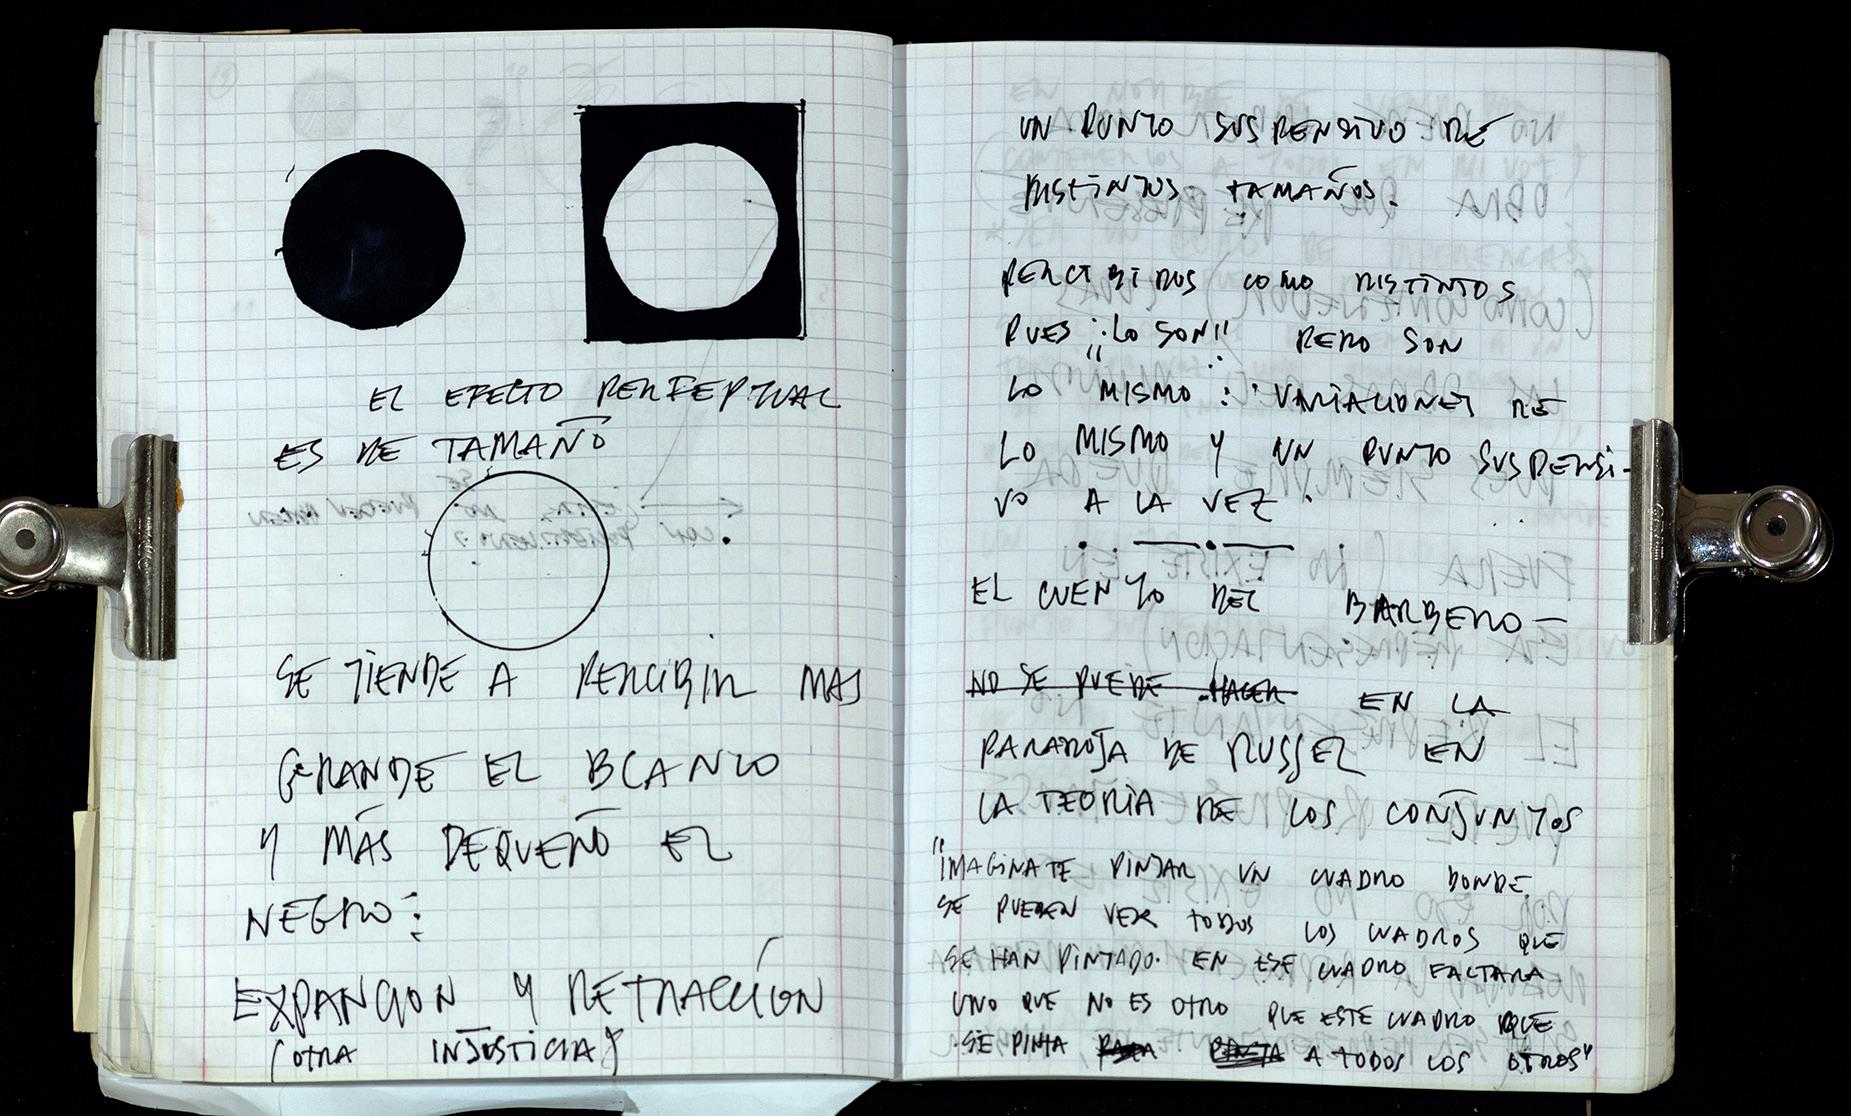 EL EFECTO PERFEPTUAL
ES DE TAMAÑO
SE TIENDE A PERCIBIR MAS
GRANDE EL BLANCO
Y MÁS PEQUEÑO EL
NEGRO:
EXPANCION Y RETRACCIÓN
(OTRA INJUSTICIA)
UN PUNTO SUSPENSIVO DE
DISTINTOS TAMAÑOS.
PERCIBIDOS COMO DISTINTOS
PUES ¡¡LO SON!! PERO SON
LO MISMO: VARIACIONES DE
LO MISMO Y UN PUNTO SUSPENSI-
VO A LA VEZ.
EL CUENTO DEL BARBERO—
NO SE PUEDE HACER EN LA
PARADOJA DE RUSSEL EN
LA TEORIA DE LOS CONJUNTOS
"IMAGINATE PINTAR UN CUADRO DONDE
SE PUEDEN VER TODOS LOS CUADROS QUE
SE HAN PINTADO. EN ESE CUADRO FALTARA
UNO QUE NO ES OTRO QUE ESTE CUADRO QUE
SE PINTA A TODOS LOS OTROS"